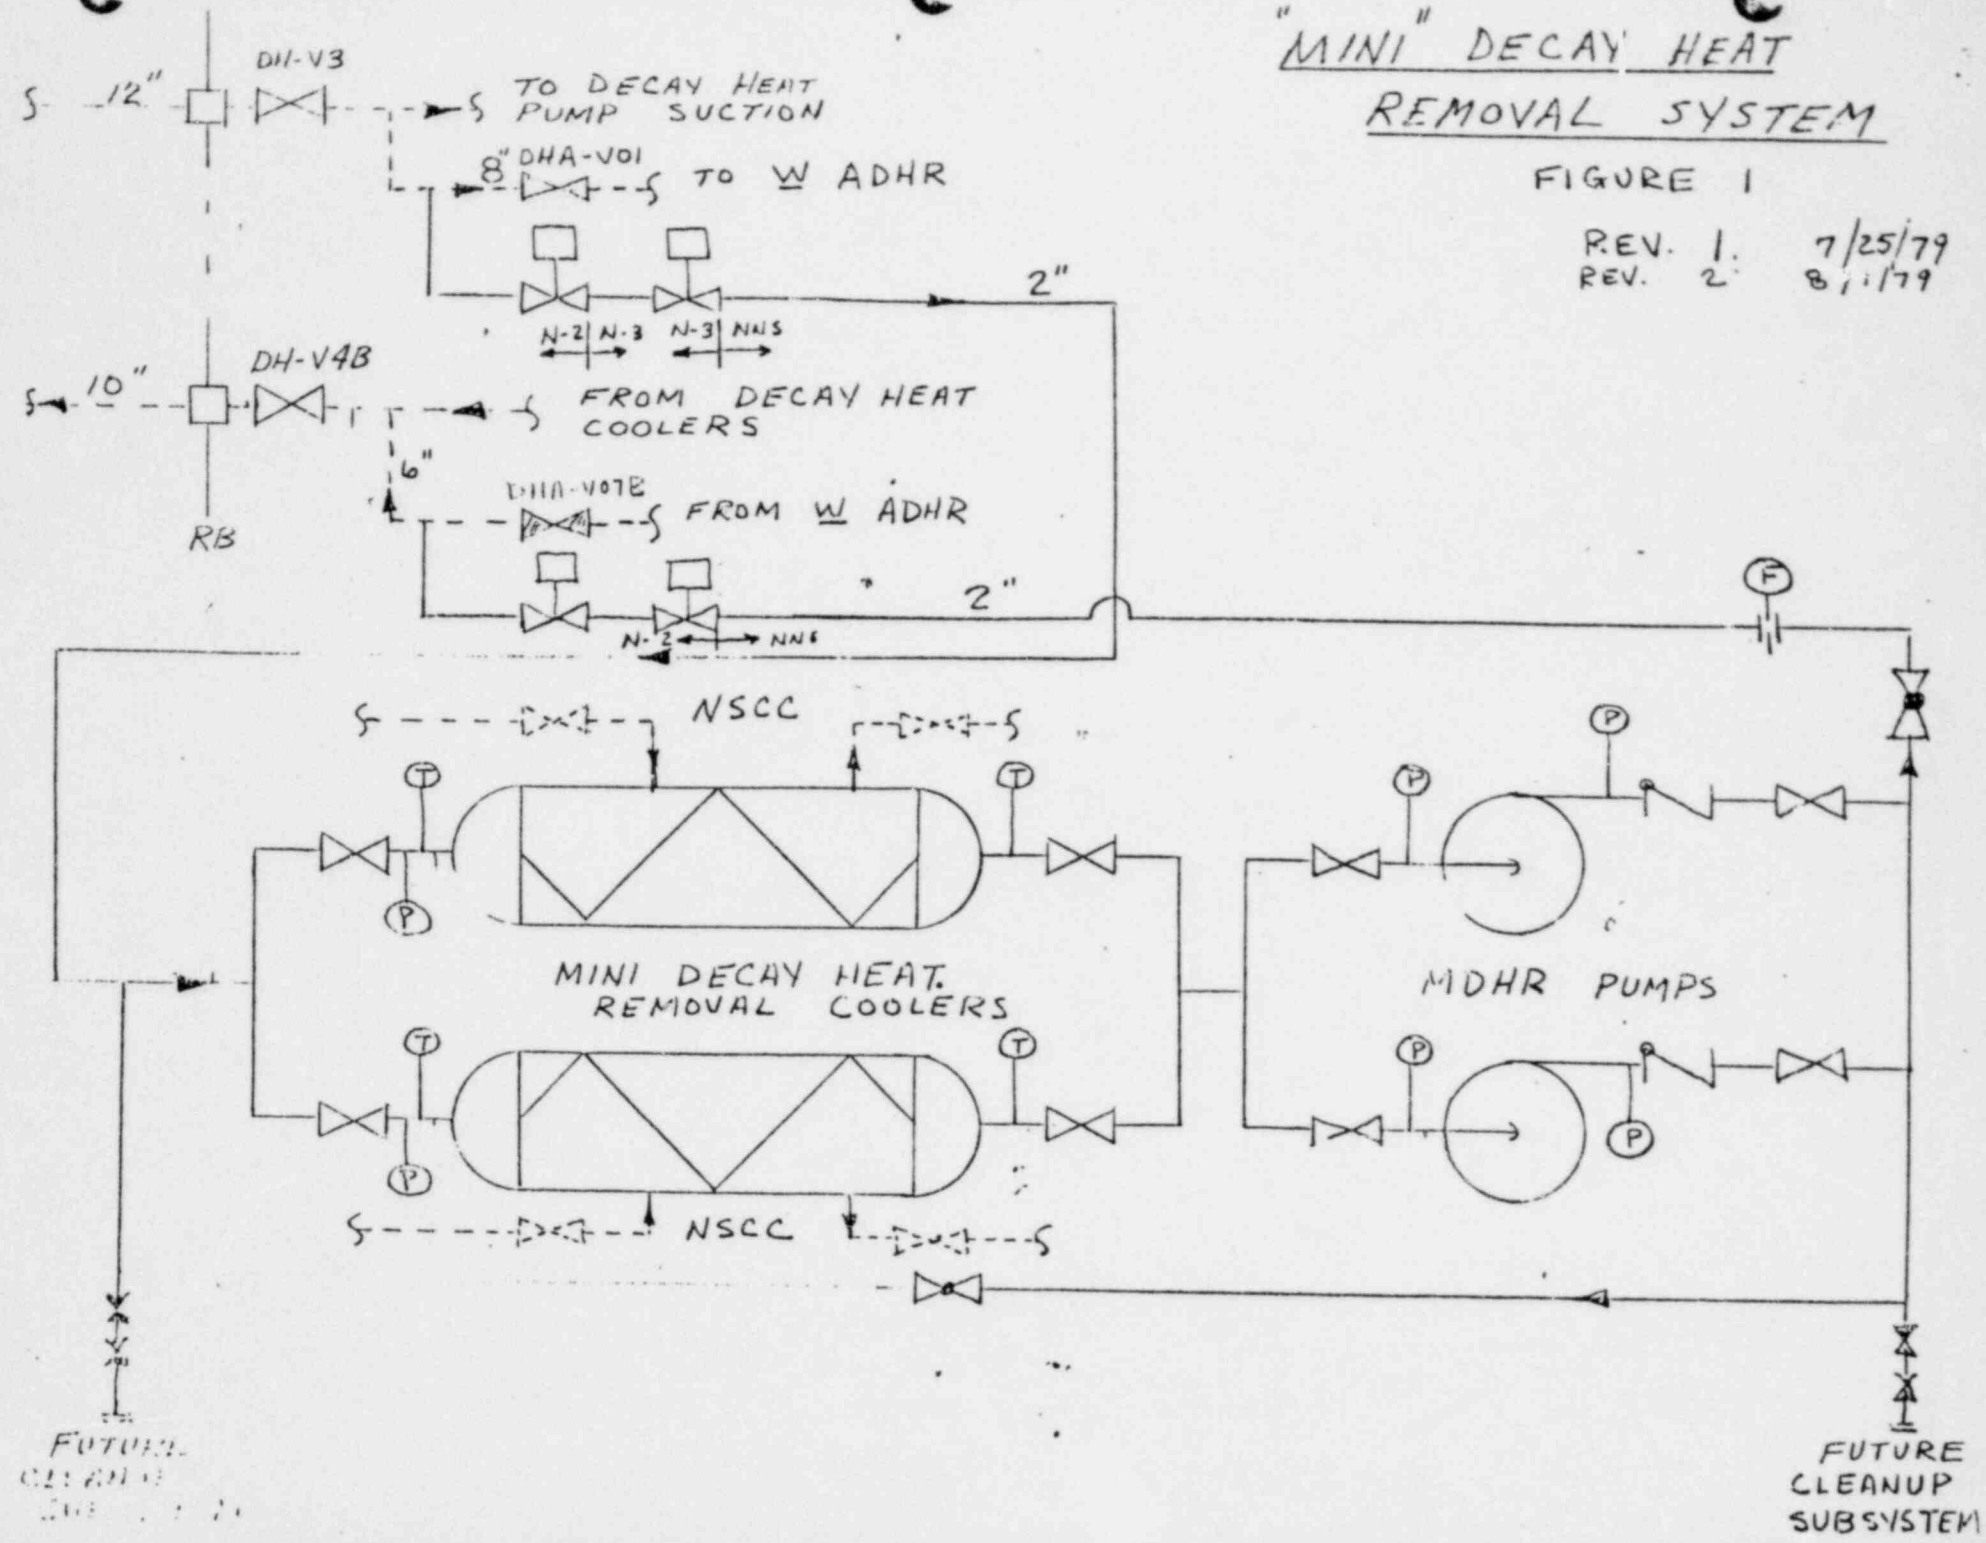 "MINI" DECAY HEAT
REMOVAL SYSTEM
FIGURE 1
REV. 1. 7/25/79
REV. 2
12"
DH-V3
TO DECAY HEAT
PUMP SUCTION
8" DHA-V01
TO W ADHR
2"
N-2 N-3 N-3 NNS
10"
DH-V4B
FROM DECAY HEAT
COOLERS
6"
FROM W ADHR
RB
2"
N-2 NNS
F
NSCC
T T P P
P
MINI DECAY HEAT.
REMOVAL COOLERS
MDHR PUMPS
T T P
P P
NSCC
FUTURE
FUTURE
CLEANUP
SUBSYSTEM